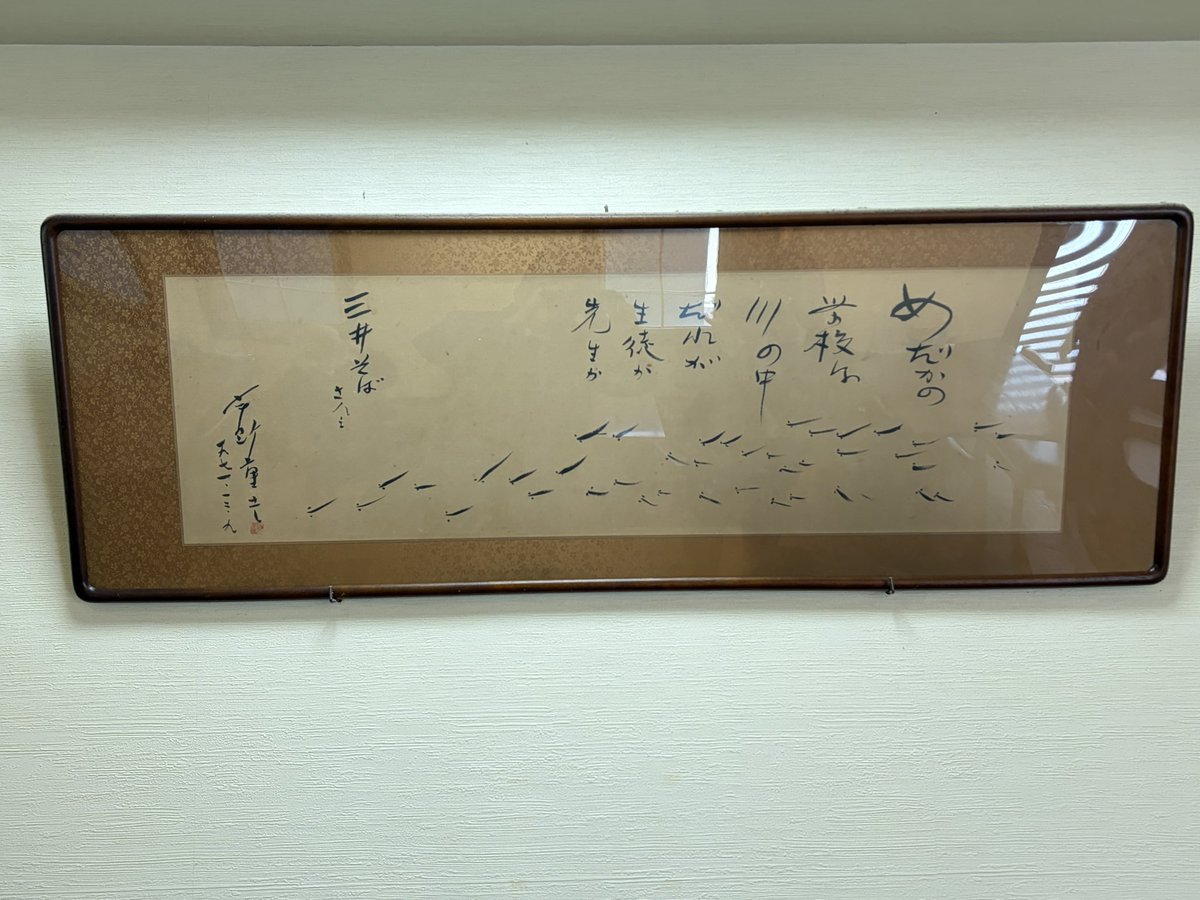 めだかの
学校は
川の中
だれが
生徒か
先生か
三井そば
さん江